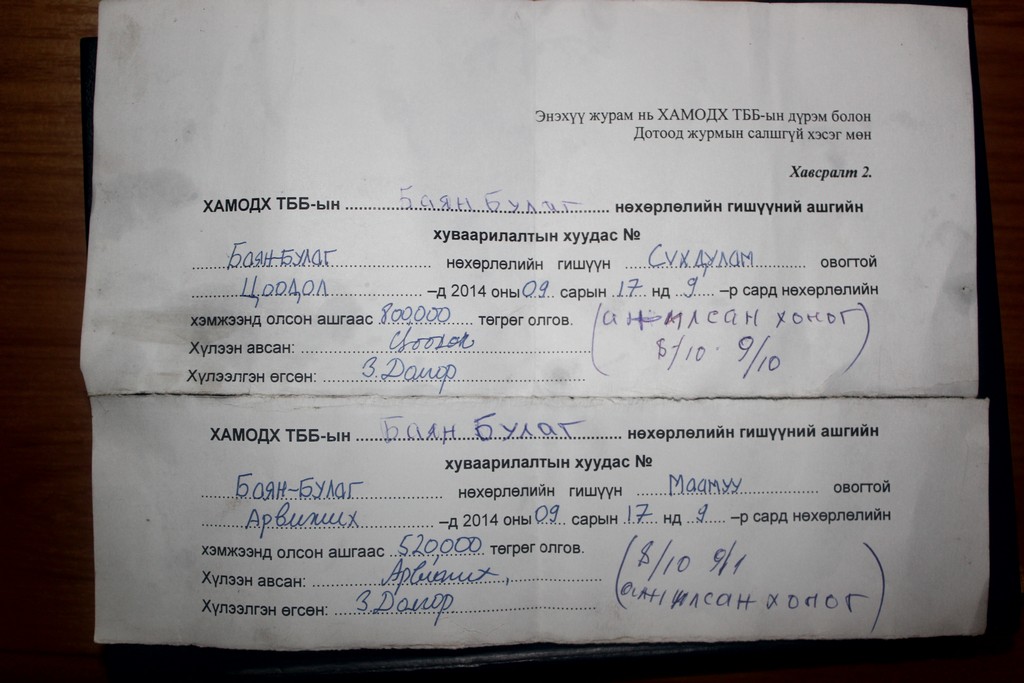 Энэхүү журам нь ХАМОДХ ТББ-ын дүрэм болон
Дотоод журмын салшгүй хэсэг мөн
Хавсралт 2.
ХАМОДХ ТББ-ын Баян Булаг нөхөрлөлийн гишүүний ашгийн
хуваарилалтын хуудас №
Баян-Булаг нөхөрлөлийн гишүүн Сухдулам овогтой
Цоодол –д 2014 оны 09 сарын 17 нд 9 –р сард нөхөрлөлийн
хэмжээнд олсон ашгаас 800,000 төгрөг олгов. (
Хүлээн авсан: Цоодол
Хүлээлгэн өгсөн: З.Долгор
ажилсан хоног
8/10 9/10 )
ХАМОДХ ТББ-ын Баян Булаг нөхөрлөлийн гишүүний ашгийн
хуваарилалтын хуудас №
Баян-Булаг нөхөрлөлийн гишүүн Маамуу овогтой
Арвижих –д 2014 оны 09 сарын 17 нд 9 –р сард нөхөрлөлийн
хэмжээнд олсон ашгаас 520,000 төгрөг олгов.
Хүлээн авсан: Арвижих
Хүлээлгэн өгсөн: З.Долгор
( 8/10 9/1
ажилсан хоног )